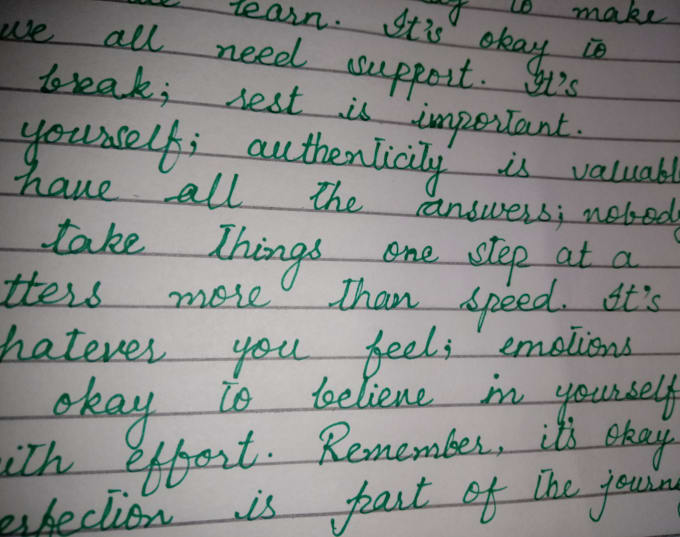 learn. It's okay to make
we all need support. It's
break; rest is important.
yourself; authenticity is valuabl
have all the answers; nobody
take things one step at a
tters more than speed. It's
hatever you feel; emotions
okay to believe in yourself
ith effort. Remember, it's okay
erfection is part of the journ